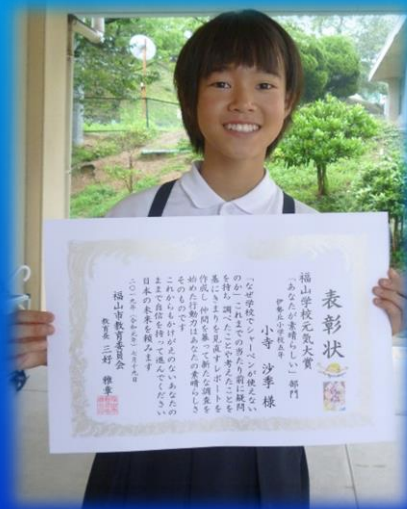 表彰状
福山学校元気大賞
「あなたが素晴らしい」部門
伊勢丘小学校五年
小寺 沙季 様
「なぜ学校でシャーペンが使えない
のか」これまでの当たり前に疑問
を持ち 調べたことや考えたことを
基にきまりを見直すレポートを
作成し 仲間を募って新たな調査を
始めた行動力はあなたの素晴らしさ
そのものです
これからもかけがえのないあなたの
ままで自信を持って進んでください
日本の未来を頼みます
二〇一九年(令和元年)七月十九日
福山市教育委員会
教育長 三好 雅章